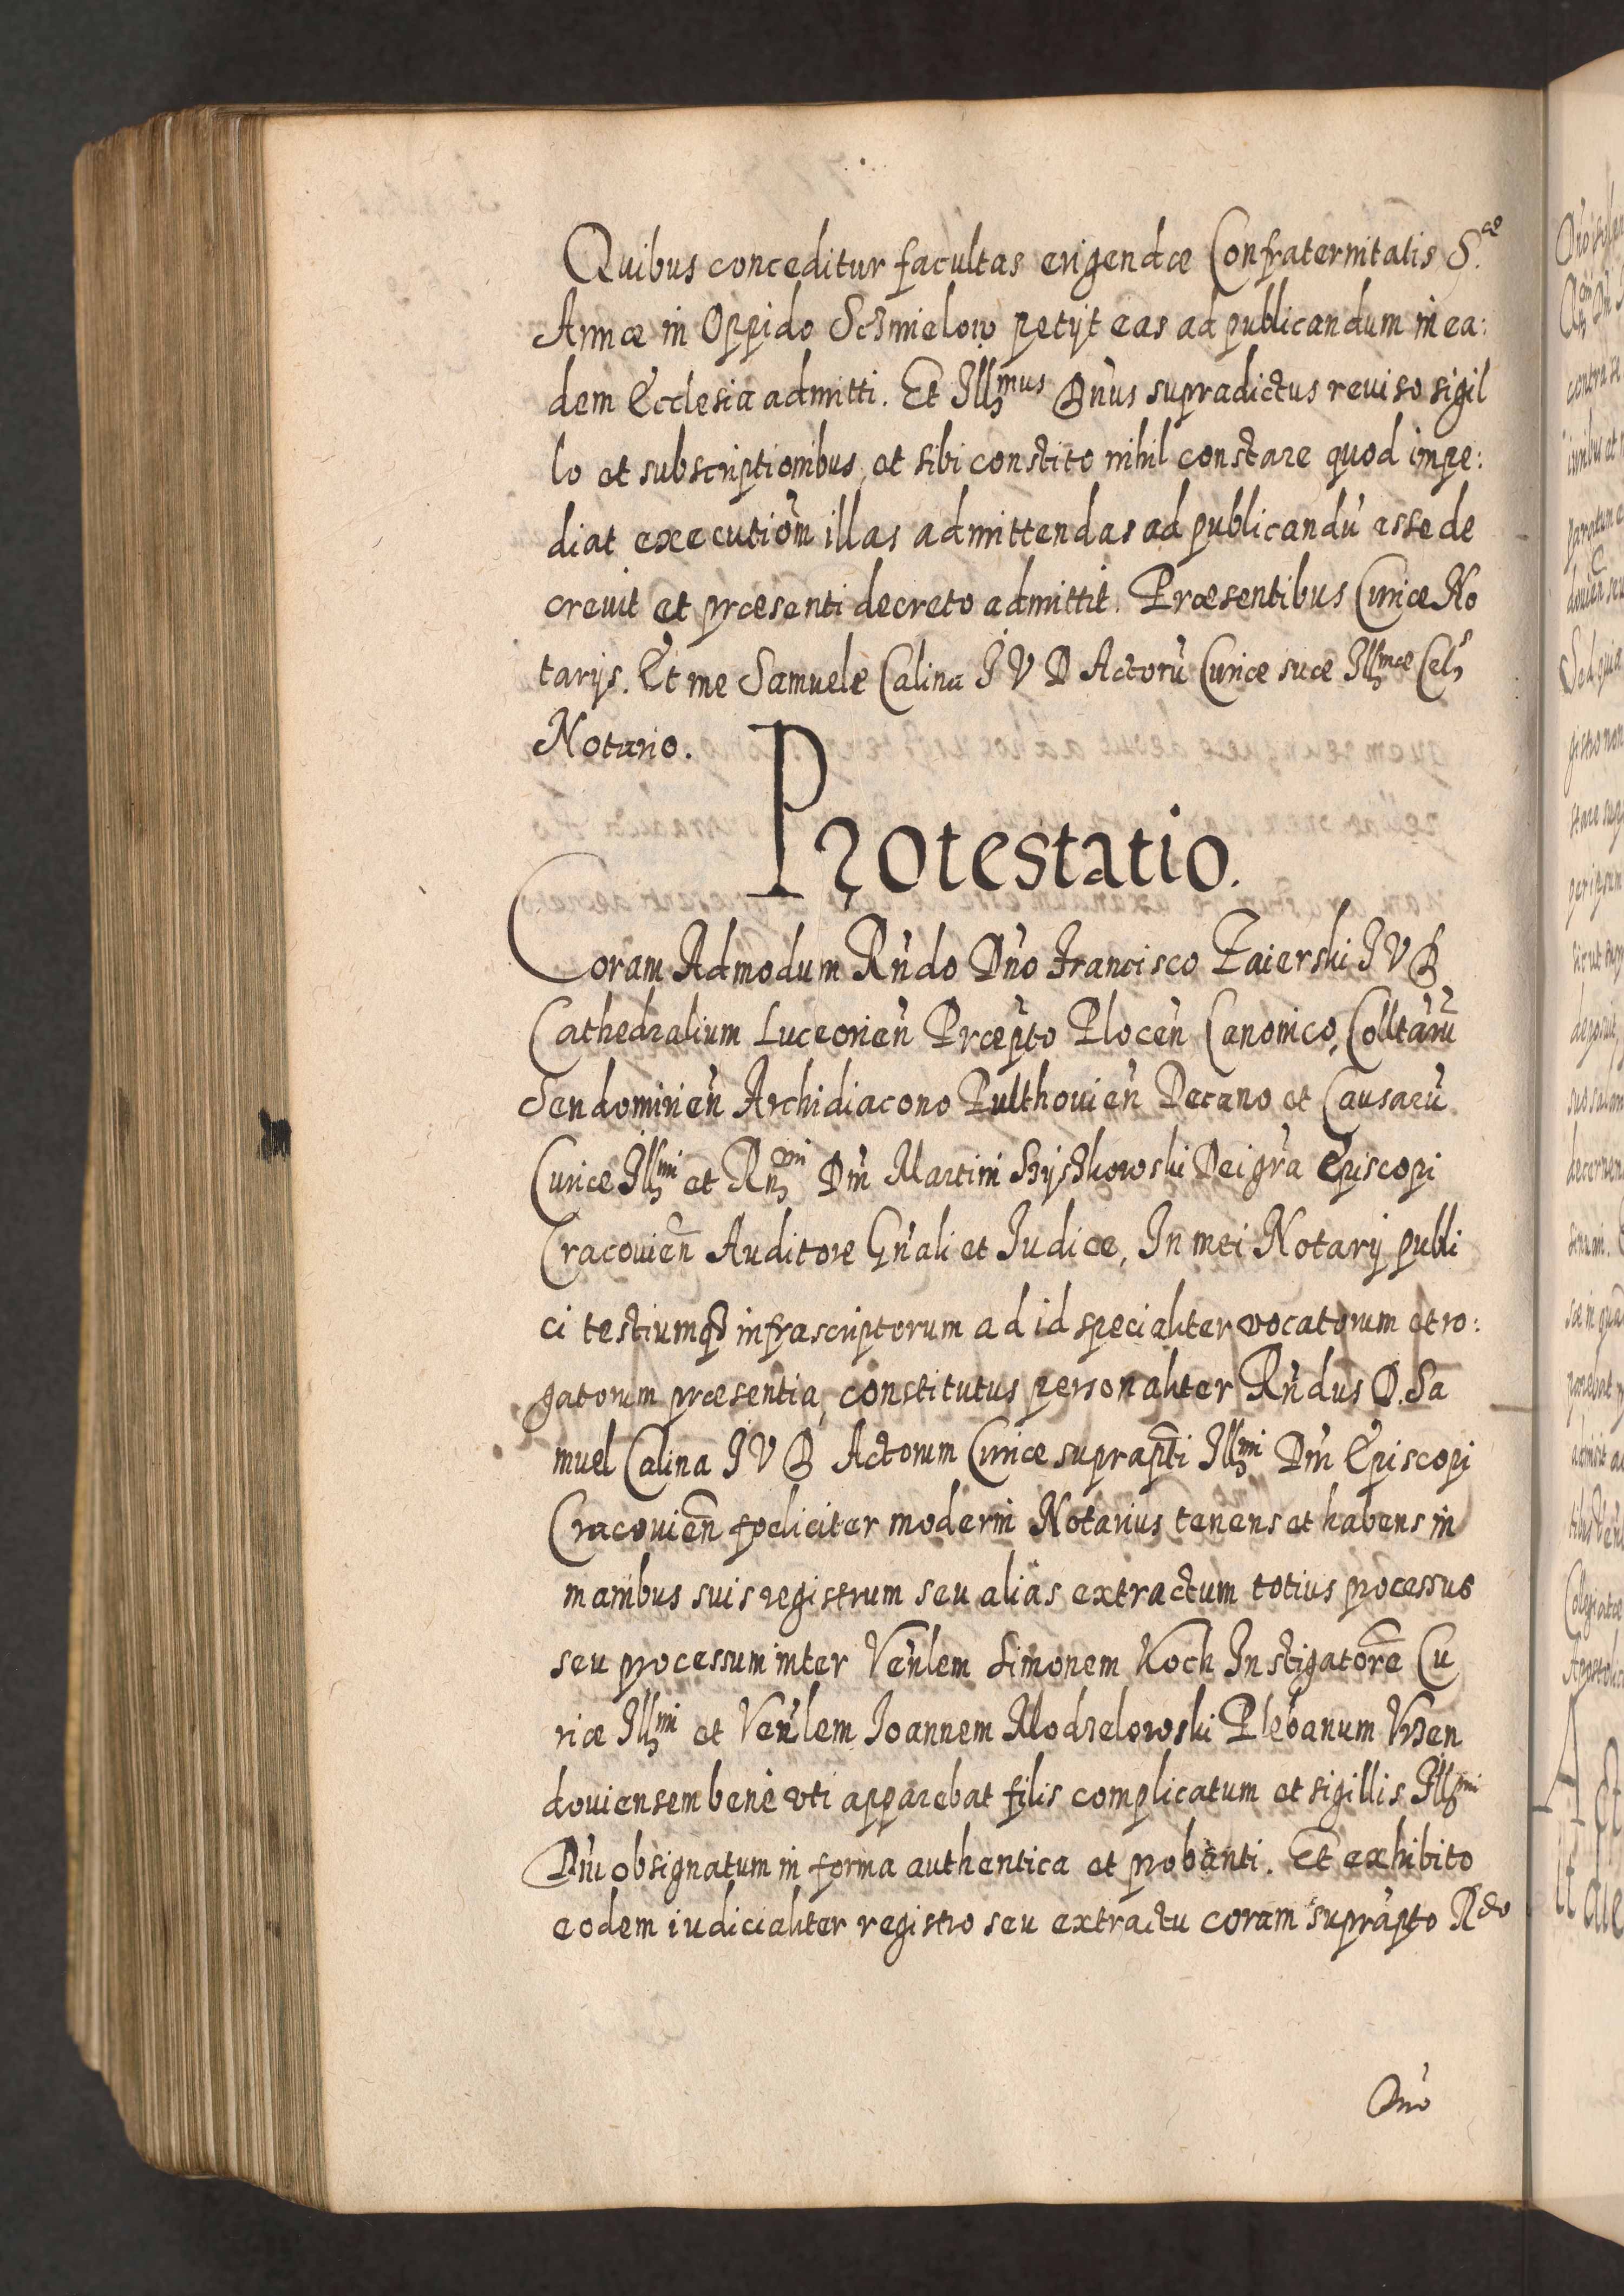 Quibus conceditur facultas erigendæ Confraternitatis S.cæ
Annæ in Oppido Schmielow petyt eas ad publicandum in ea:
dem Ecclesia admitti. Et Illmus Dnus supradictus reuiso sigil
lo et subscriptionibus, et sibi constito nihil constare quod impe:
diat executiõm illas admittendas ad publicandũ esse de
creuit et præsenti decreto admittit. Præsentibus Curiæ No
tarys. Et me Samuele Calina I V D Actorũ Curiæ suæ Illmæ Cels
Notario.
Protestatio.
Coram Admodum Rndo Dno Francisco Zaierski I V D
Cathedralium Luceorieñ Præpto Ploceñ Canonico, Colltarũ
Sendomirieñ Archidiacono Pulthouieñ Decano et Causarũ
Curiæ Illmi et Rmi Dni Martini Szyszkowski Dei gra Episcopi
Cracouieñ Auditore Gnali et Iudice, In mei Notary publi
ci testiumq3 infrascriptorum ad id specialiter vocatorum et ro:
gatorum præsentia, constitutus personaliter Rndus D. Sa
muel Calina I V D Actorum Curiæ suprapti Illmi Dni Episcopi
Cracouieñ fœliciter moderni Notarius tenens et habens in
manibus suis registrum seu alias extractum totius processus
seu processum inter Venlem Simonem Koch Instigatorẽ Cu
riæ Illmi et Venlem Ioannem Modzelowski Plebanum Vrzen
douiensem bene vti apparebat filis complicatum et sigillis Illmi
Dni obsignatum in forma authentica et probanti. Et exhibito
eodem iudicialiter registro seu extractu coram suprapto Rdo
Dno